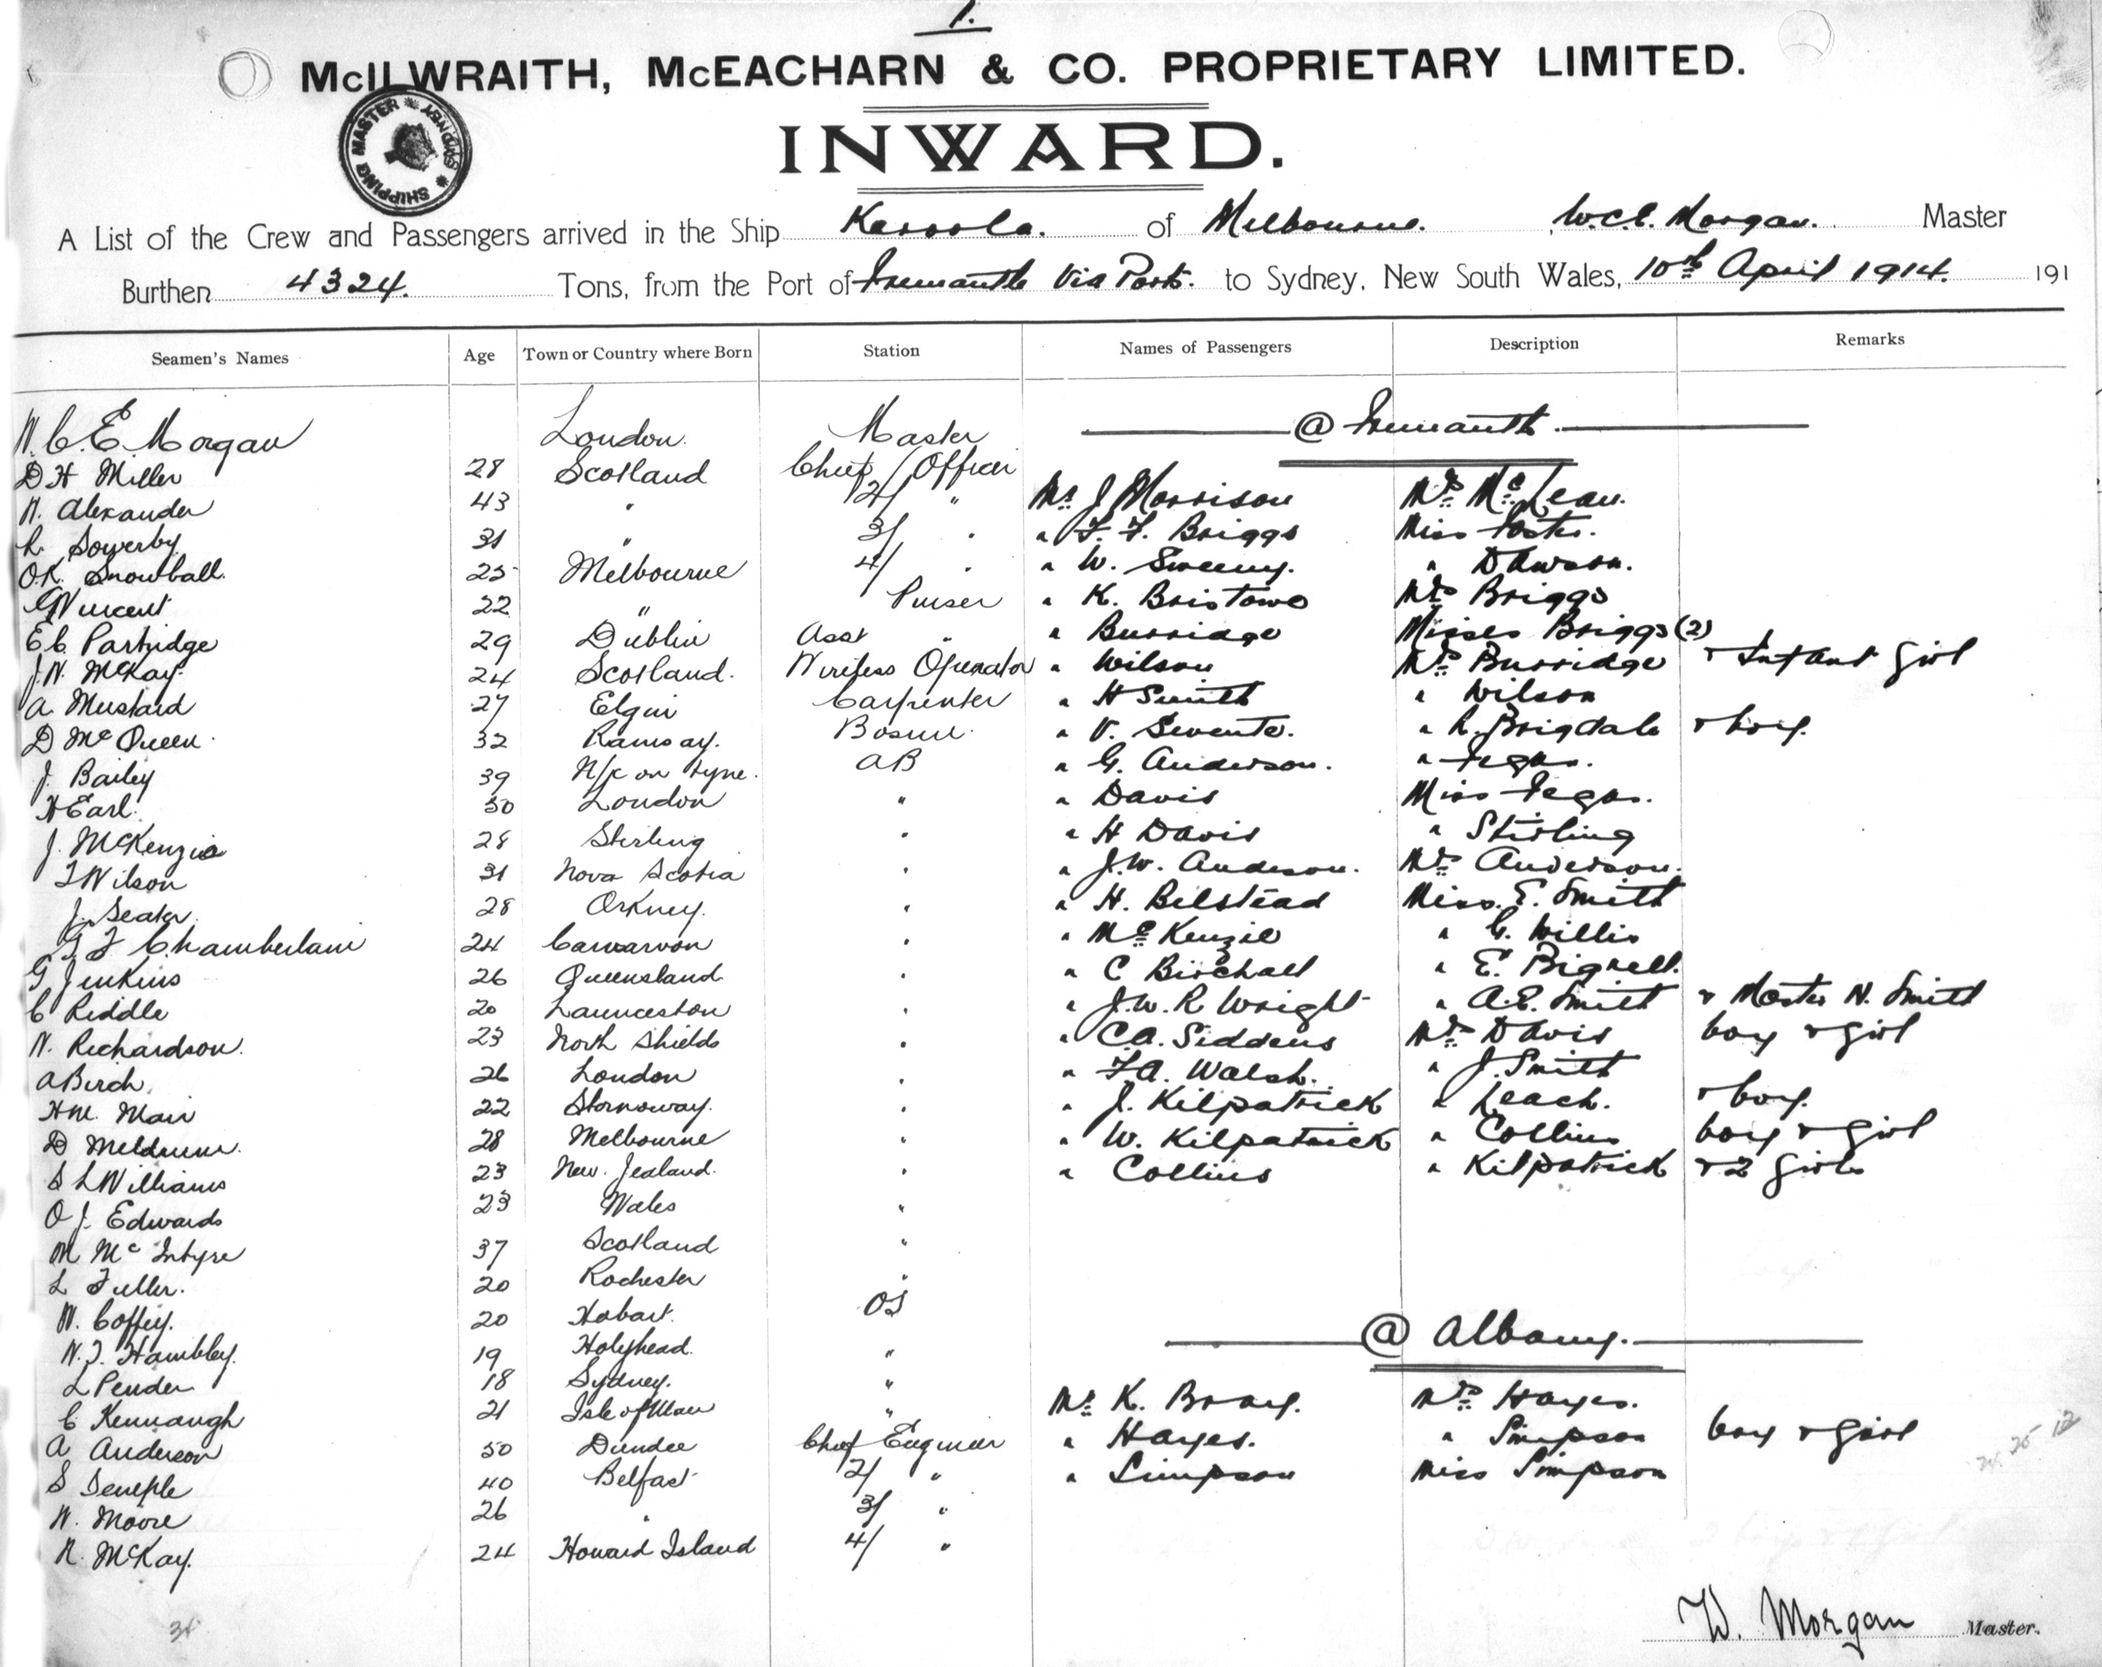 1.
McILWRAITH, McEACHARN & CO. PROPRIETARY LIMITED.
SHIPPING MASTER * SYDNEY *
INWARD.
A List of the Crew and Passengers arrived in the Ship Karoola. of Melbourne. W.C.E. Morgan. Master
Burthen 4324. Tons, from the Port of Fremantle Via Ports. to Sydney, New South Wales, 10th April 1914. 191
Seamen's Names Age Town or Country where Born Station Names of Passengers Description Remarks
W. C. E. Morgan London. Master @ Fremantle.
D H Miller 28 Scotland Chief / Officer
N. Alexander 43 " 2/ " Mr J Morrison Mrs McLean.
L. Sowerby 31 " 3/ " " F. F. Briggs Miss Foster.
O.K. Snowball. 25 Melbourne 4/ " " W. Sweeny. " Dawson.
G Vincent 22 " Purser " K. Bristowe Mrs Briggs
E C Partridge 29 Dublin Asst " " Burridge Misses Briggs (2)
J. N. McKay. 24 Scotland. Wireless Operator " Wilson Mrs Burridge & Infant Girl
A. Mustard 27 Elgin Carpenter " H Smith " Wilson
D McQueen. 32 Ramsay. Bosun. " V. " R. Brigdale & boy.
J. Bailey 39 N/c on Tyne. AB " G. Anderson. "
H Earl. 30 London " " Davis Miss
J. McKenzie 28 Stirling " " H Davis " Stirling
T Wilson 31 Nova Scotia " " J.W. Anderson. Mrs Anderson.
J. Seater. 28 Orkney. " " H. Bilstead Miss. E. Smith
G. F Chamberlain 24 Carnarvon " " McKenzie " G. Willis
G Jenkins 26 Queensland " " C Birchall " E. Bignell.
C Riddle 20 Launceston " " J.W.R Wright " A.E. Smith & Master N. Smith
W. Richardson. 23 North Shields " " C.A. Siddens Mrs Davis boy & girl
A Birch. 26 London " " F.A. Walsh. " J. Smith
H M. Mair 22 Stornoway. " " J. Kilpatrick " Leach. & boy.
D Meldrum. 28 Melbourne " " W. Kilpatrick " Collins boy & girl
S L Williams 23 New Zealand. " " Collins " Kilpatrick & 2 girls
O J. Edwards 23 Wales "
M McIntyre 37 Scotland "
L Fuller. 20 Rochester "
W. Coffey. 20 Hobart. OS @ Albany.
W. J. Hambley. 19 Holyhead "
L Pender 18 Sydney. " Mr K. Bray. Mrs Hayes.
C. Kennaugh 21 Isle of Man " " Hayes. " Simpson boy & girl
A Anderson 50 Dundee Chief Engineer " Simpson Miss Simpson
S Semple 40 Belfast 2/ "
W. Moore 26 " 3/ "
R. McKay. 24 Howard Island 4/ "
W. Morgan Master.